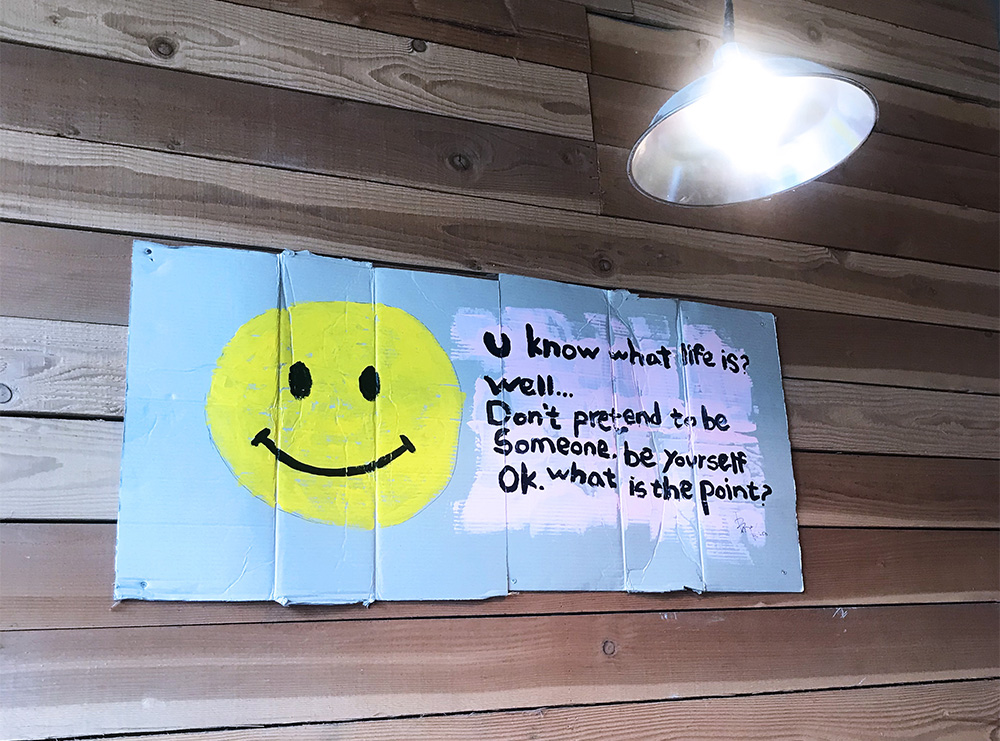 U know what life is?
Well...
Don't pretend to be
Someone. be yourself
Ok. what is the point?